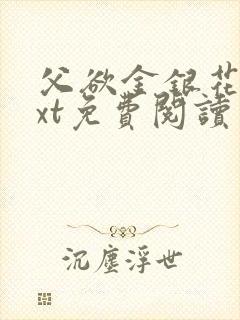 父欲金银花
xt免費閱讀
沉塵浮世